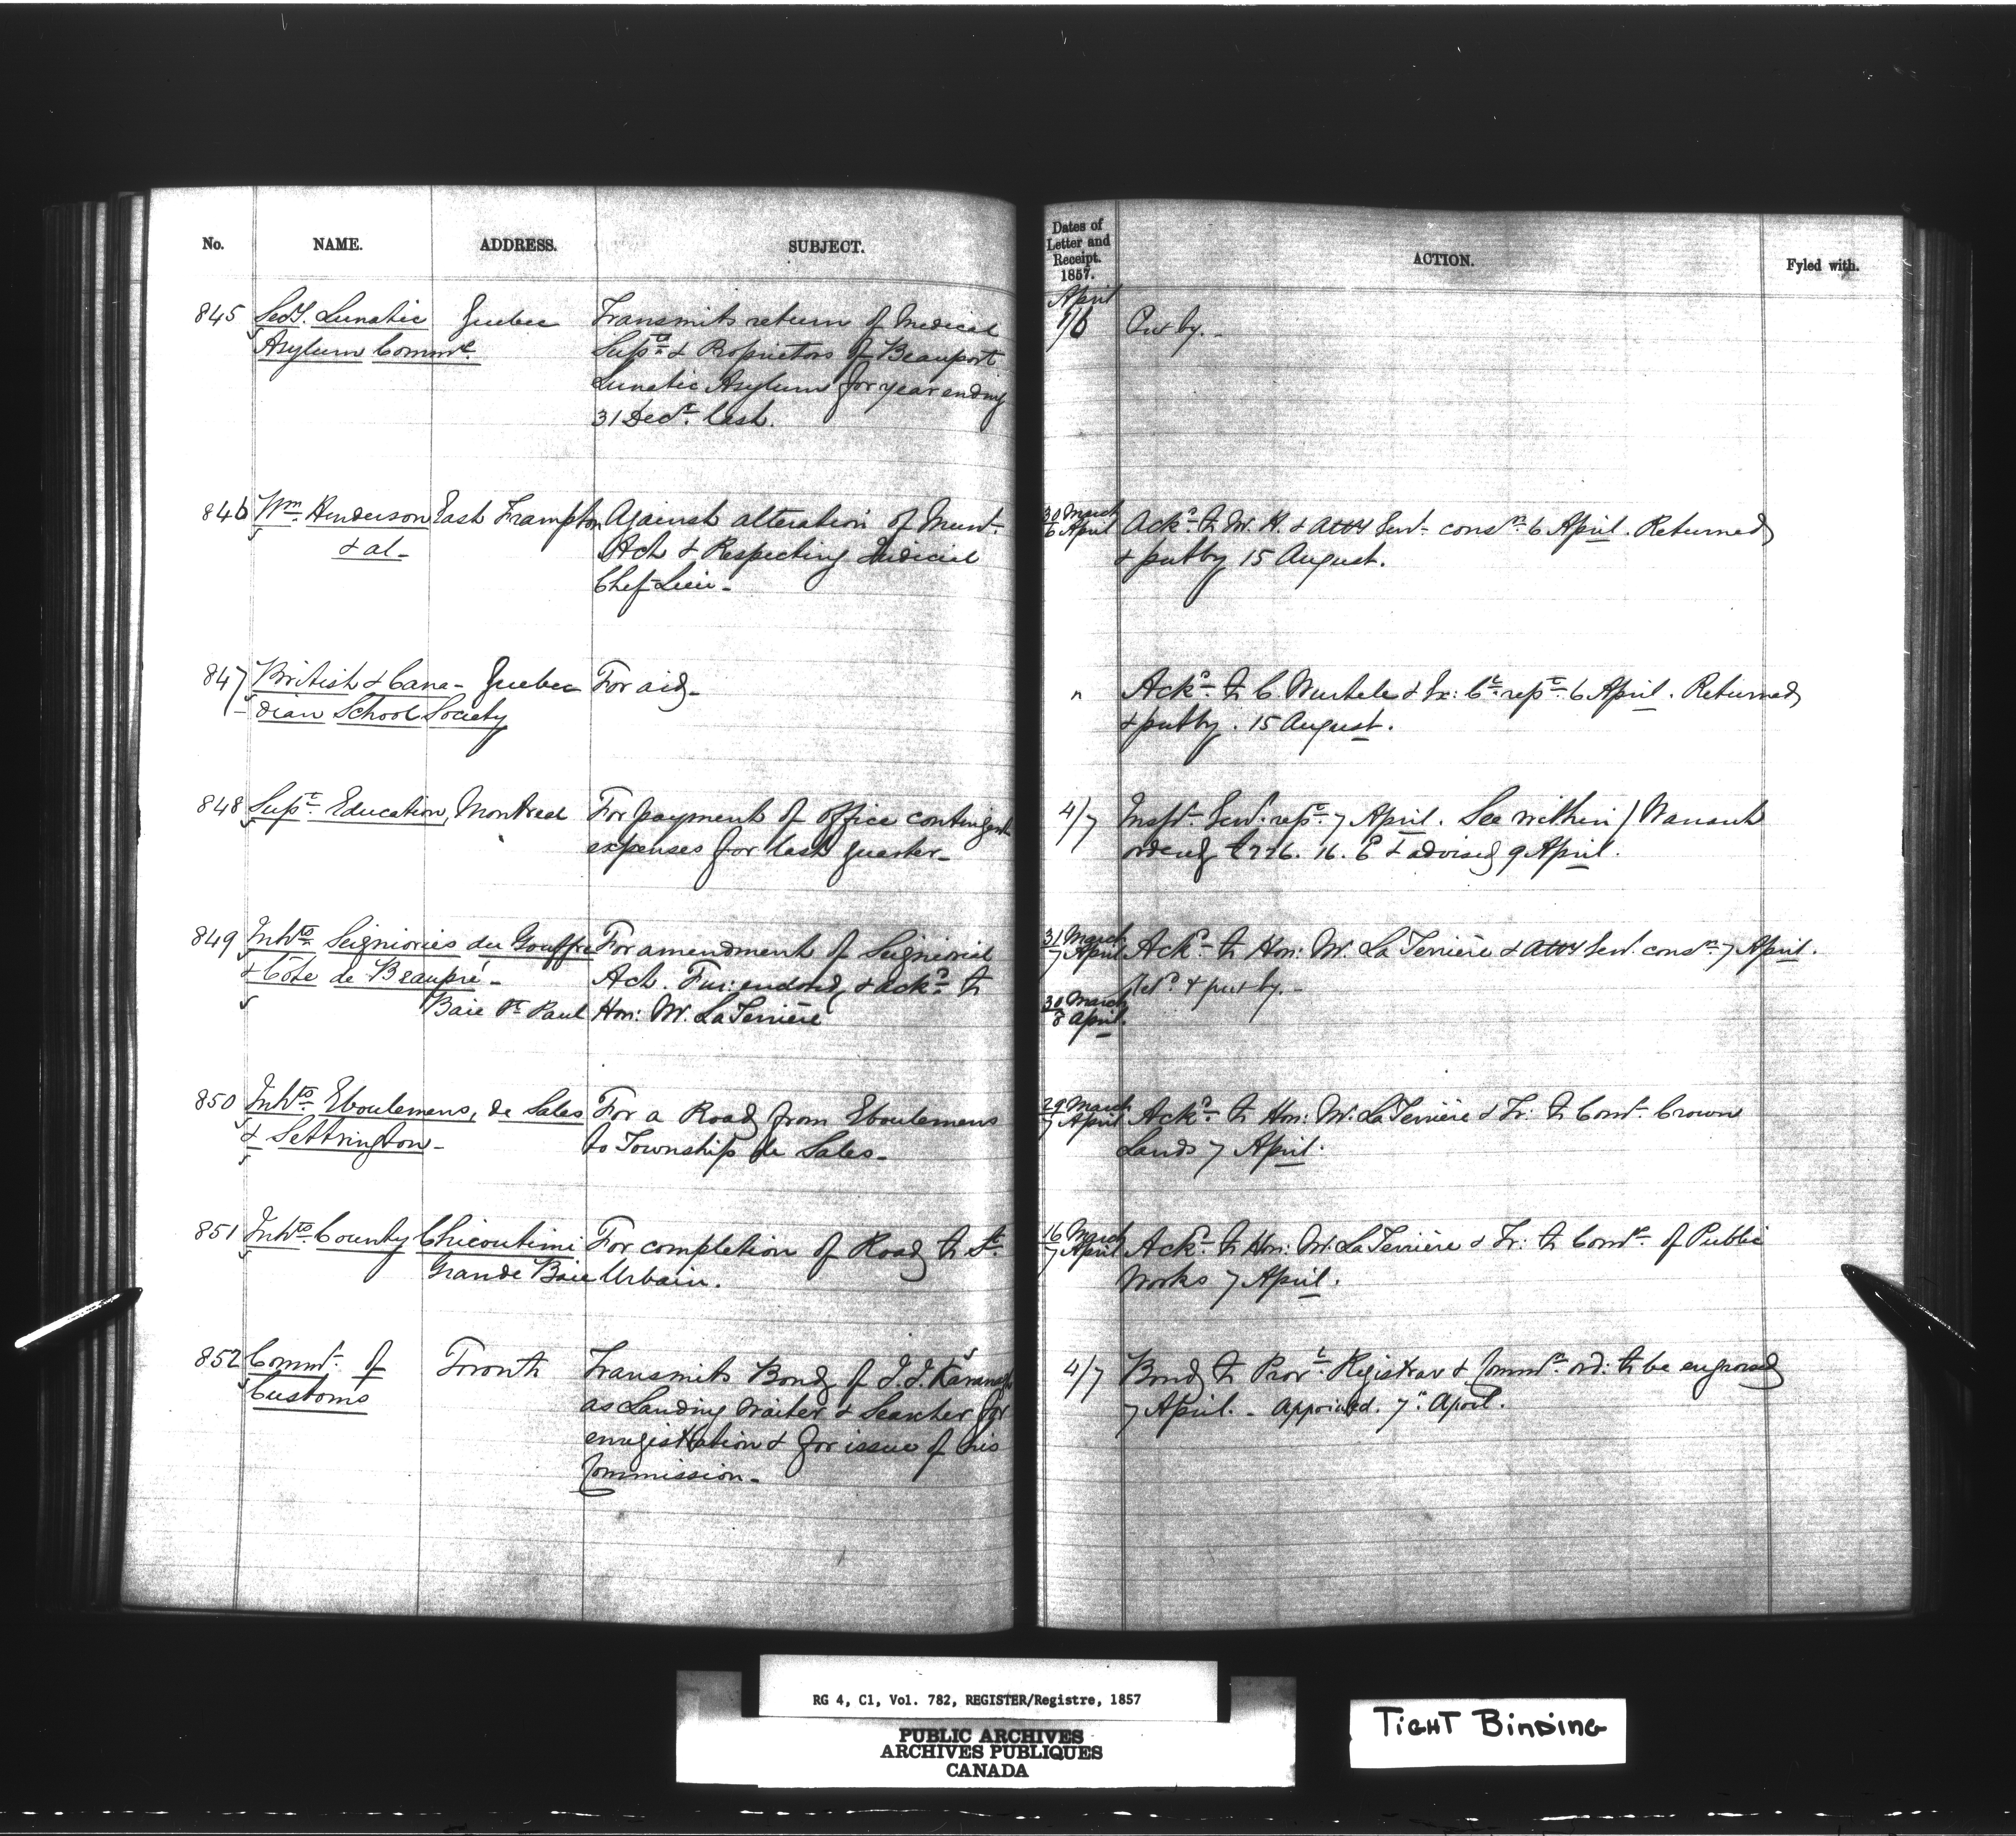 No. NAME. ADDRESS. SUBJECT.
845 Secy. Lunatic Quebec Transmits return of Medical
Asylum Commrs. Supts. & Proprietors of Beauport
Lunatic Asylum for year ending
31 Decr. last.
846 Wm. Henderson East Frampton Against alteration of Munl.
& al- Act & Respecting Judicial
Chef Lieu-
847 British & Cana- Quebec For aid-
dian School Society
848 Supt. Education, Montreal For payment of office contingent
expenses for last quarter-
849 Inhts. Seigniories du Gouffre For amendment of Seigniorial
& Côte de Beaupré- Act. Fur: endorsd. & ackd. to
Baie St. Paul Hon: M. LaTerrière
850 Inhts. Eboulemens, de Sales For a Road from Eboulemens
& Settrington- to Township de Sales-
851 Inhts. County Chicoutimi For completion of Road to St.
Grande Baie Urbain.
852 Commr. of Toronto Transmits Bond of J. J. Kavanagh
Customs as Landing Waiter & Searcher for
enregistration & for issue of his
Commission-
Dates of
Letter and
Receipt.
1857.
ACTION. Fyled with.
April
1/6 Put by.-
30 March
6 April Ackd. to W. H. & Atty Genl. consn. 6 April. Returned
& put by 15 August.
" Ackd. to C. Wurtele & Ex: Cl. rept. 6 April. Returned
& put by. 15 August.
4/7 Inspr. Genl. rept. 7 April. See within / Warrant
ordered £226. 16. & advised 9 April.
31 March
7 April Ackd. to Hon: M. LaTerrière & Atty Genl. consn. 7 April.
Retd. & put by.-
30 March
8 April.
29 March
7 April Ackd. to Hon: M. LaTerrière & Tr: to Comr. Crown
Lands 7 April.
16 March
7 April Ackd. to Hon: M. LaTerrière & Tr: to Comrs. of Public
Works 7 April.
4/7 Bond to Provl. Registrar & Commn. ord: to be engrossed
7 April.- Appointed. 7" April.
RG 4, C1, Vol. 782, REGISTER/Registre, 1857
PUBLIC ARCHIVES
ARCHIVES PUBLIQUES
CANADA
TIGHT BINDING